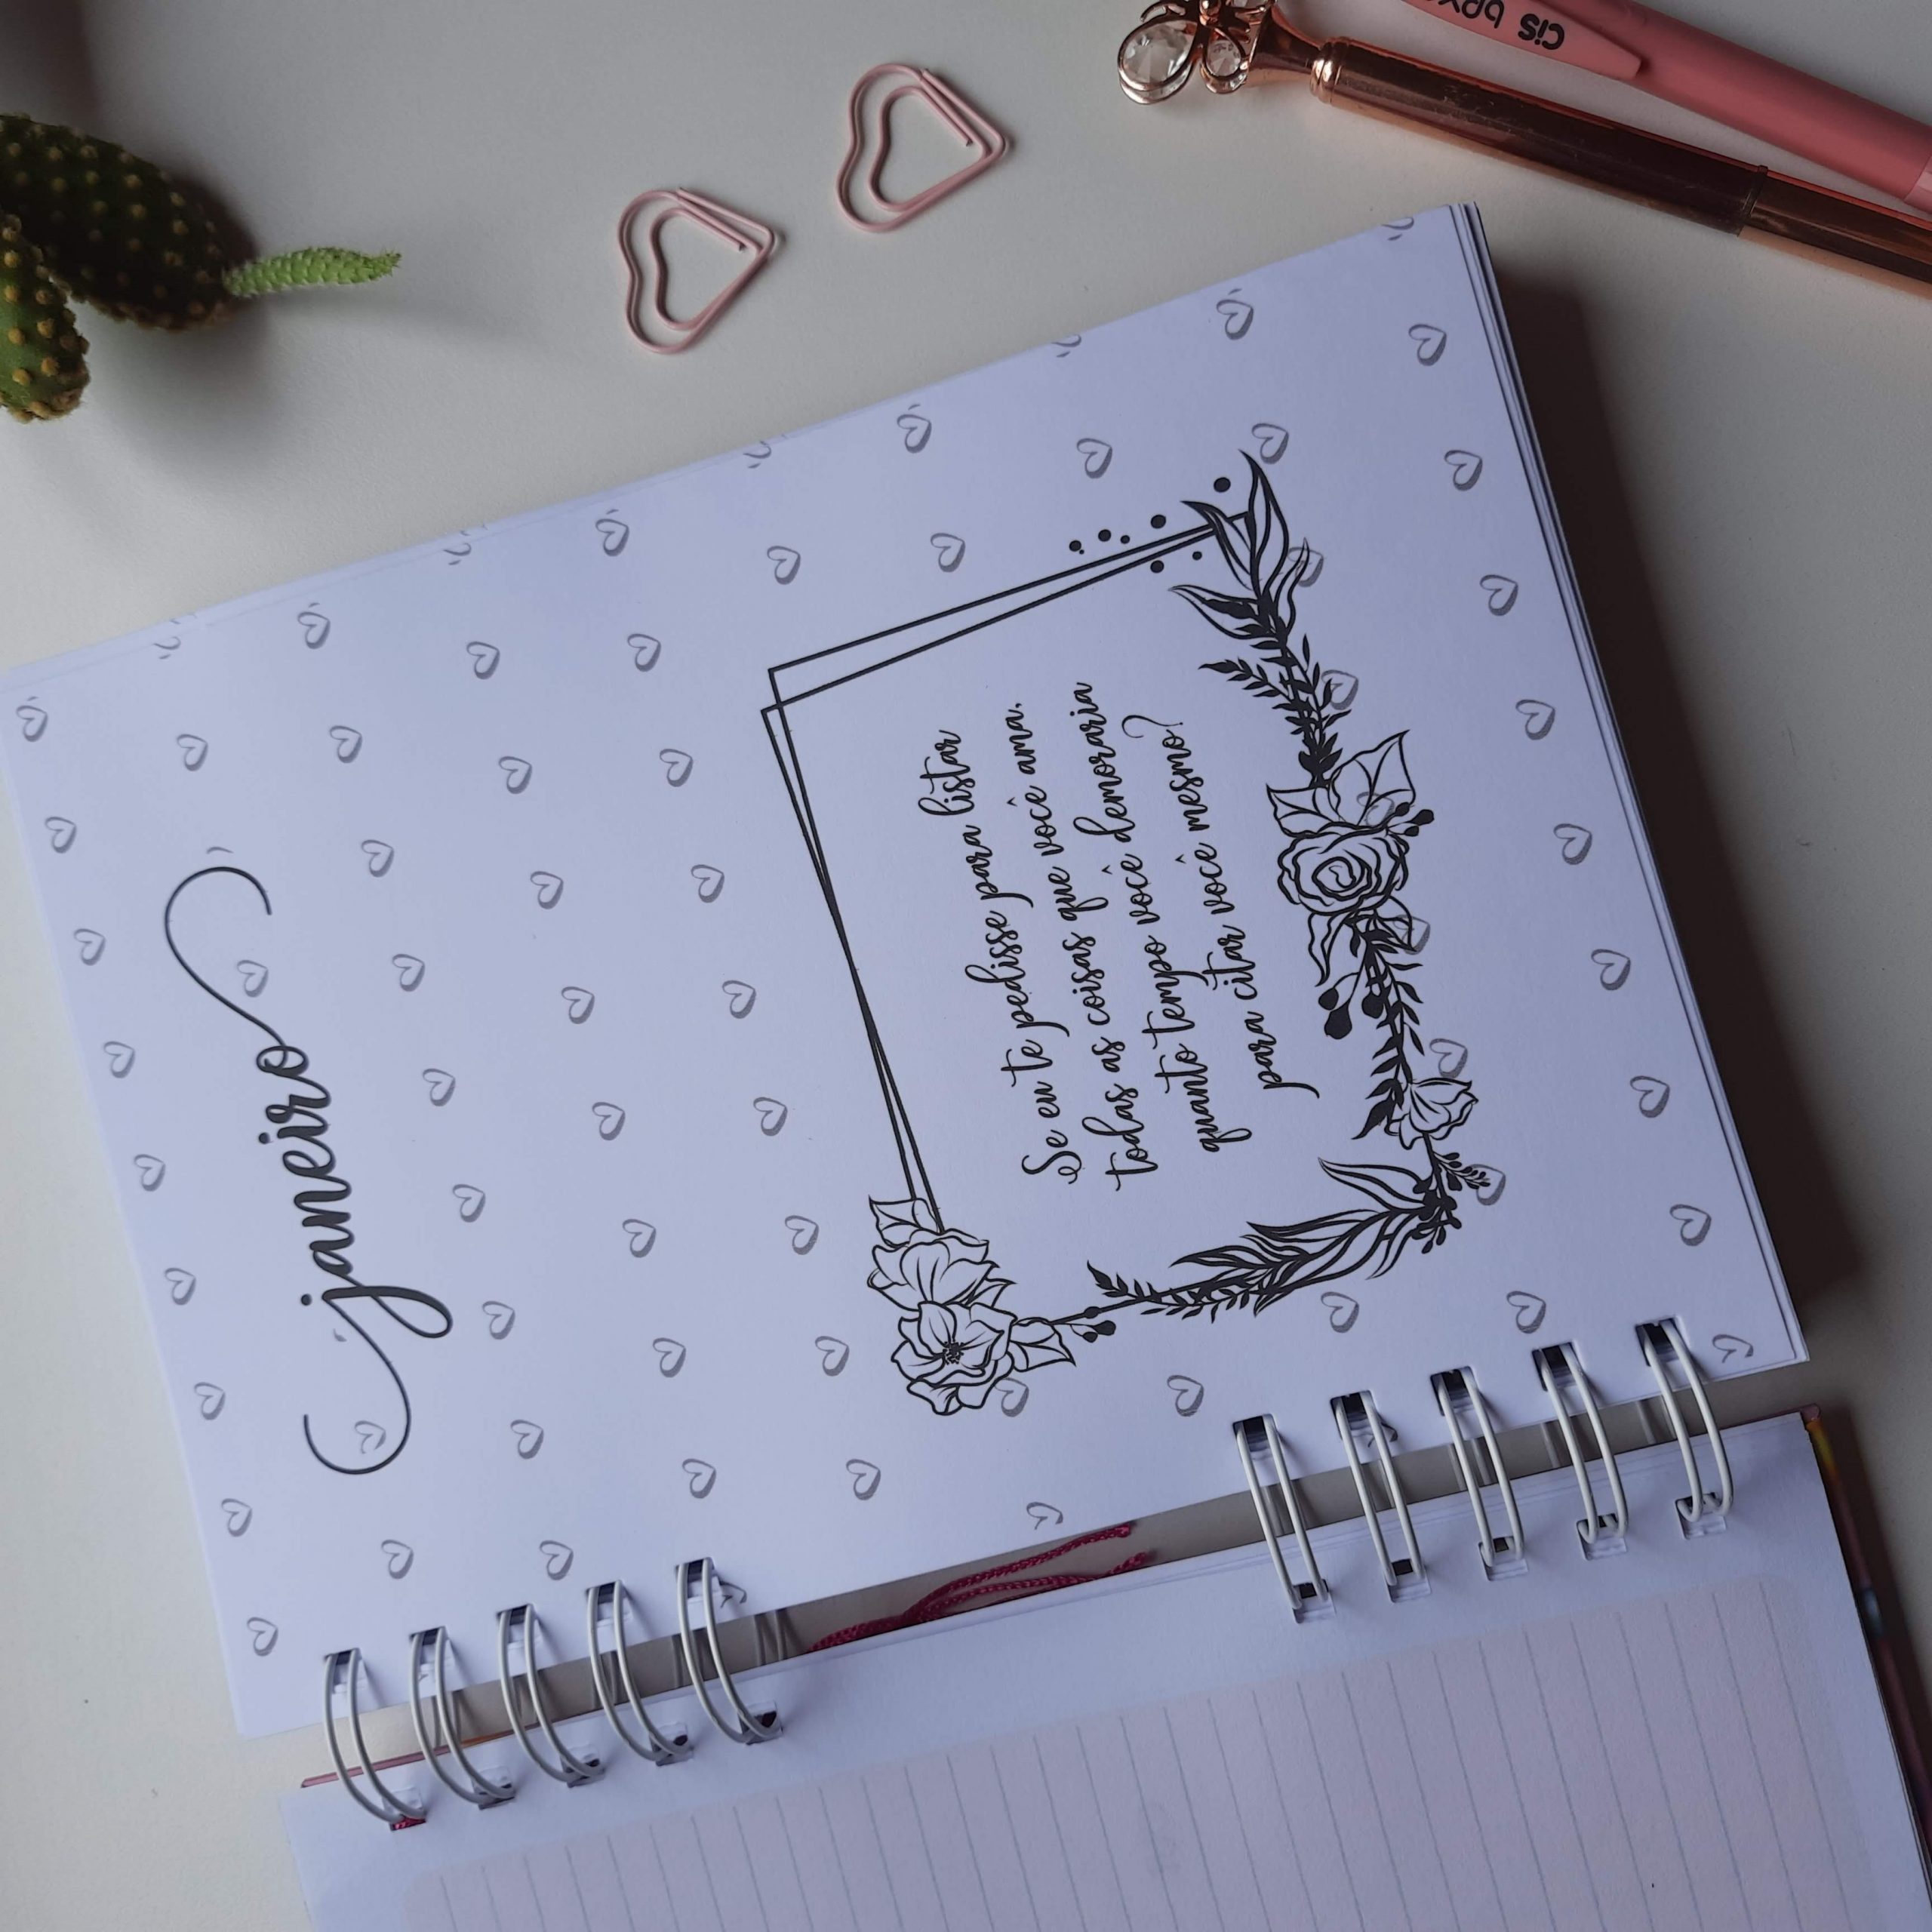 janeiro
Se eu te pedisse para listar
todas as coisas que você ama,
quanto tempo você demoraria
para citar você mesmo?
cis